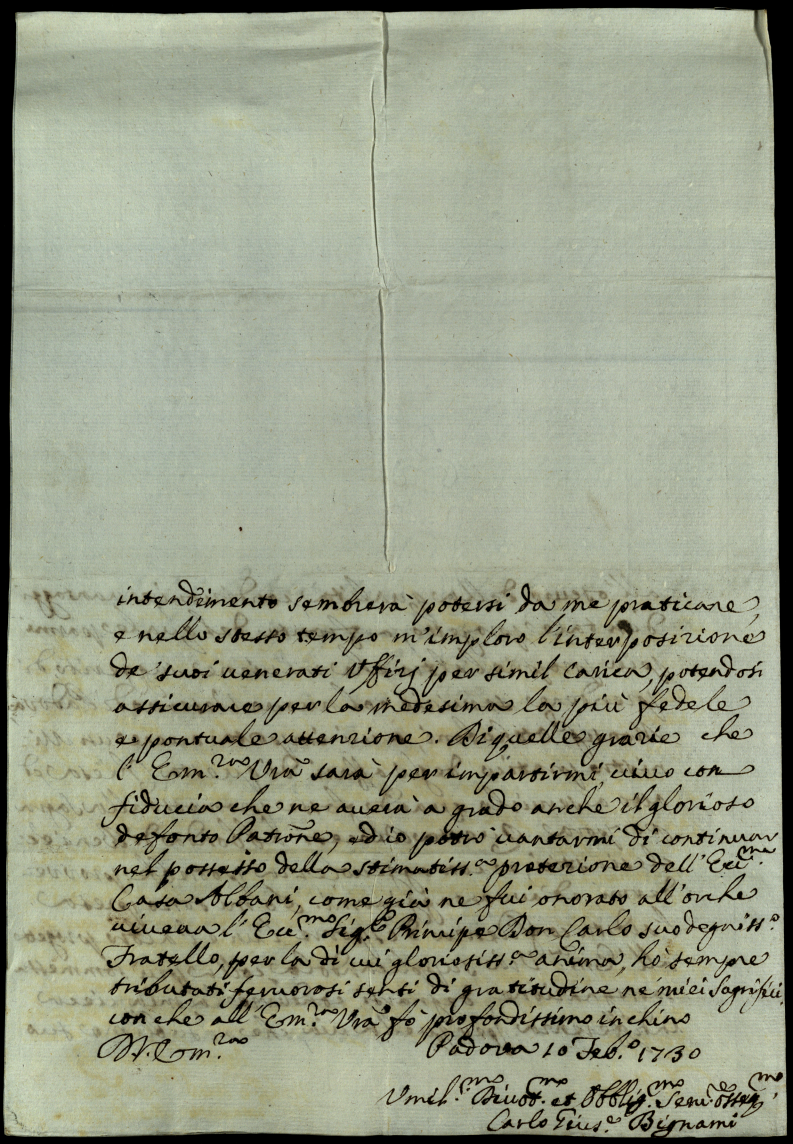 intendimento sembrerà potersi da me praticare,
e nello stesso tempo m'imploro l'interposizione
de' suoi venerati Uffizj per simil Carica, potendosi
assicurare per la medesima la più fedele
e pontuale attenzione. Di quelle grazie che
l'Em.za Vrã sarà per impartirmi, vivo con
fiducia che ne averà a grado anche il glorioso
defonto Patrõne, ed io potrò vantarmi di continuar
nel possesso della stimatiss.a protezione dell'Ecc.ma
Casa Albani, come già ne fui onorato all'orche
viveva l'Ecc.mo Sig.re Principe Don Carlo suo degniss.o
Fratello, per la di cui gloriosiss.a anima, hò sempre
tributati fervorosi senti di gratitudine ne miei Sagrifici,
con che all'Em.za Vrã fò profondissimo inchino
D. V. Em.za Padova 10 Feb.o 1730
Umil.mo Divot.mo et Obblig.mo Serv.e Osseq.mo
Carlo Gius.e Bignami